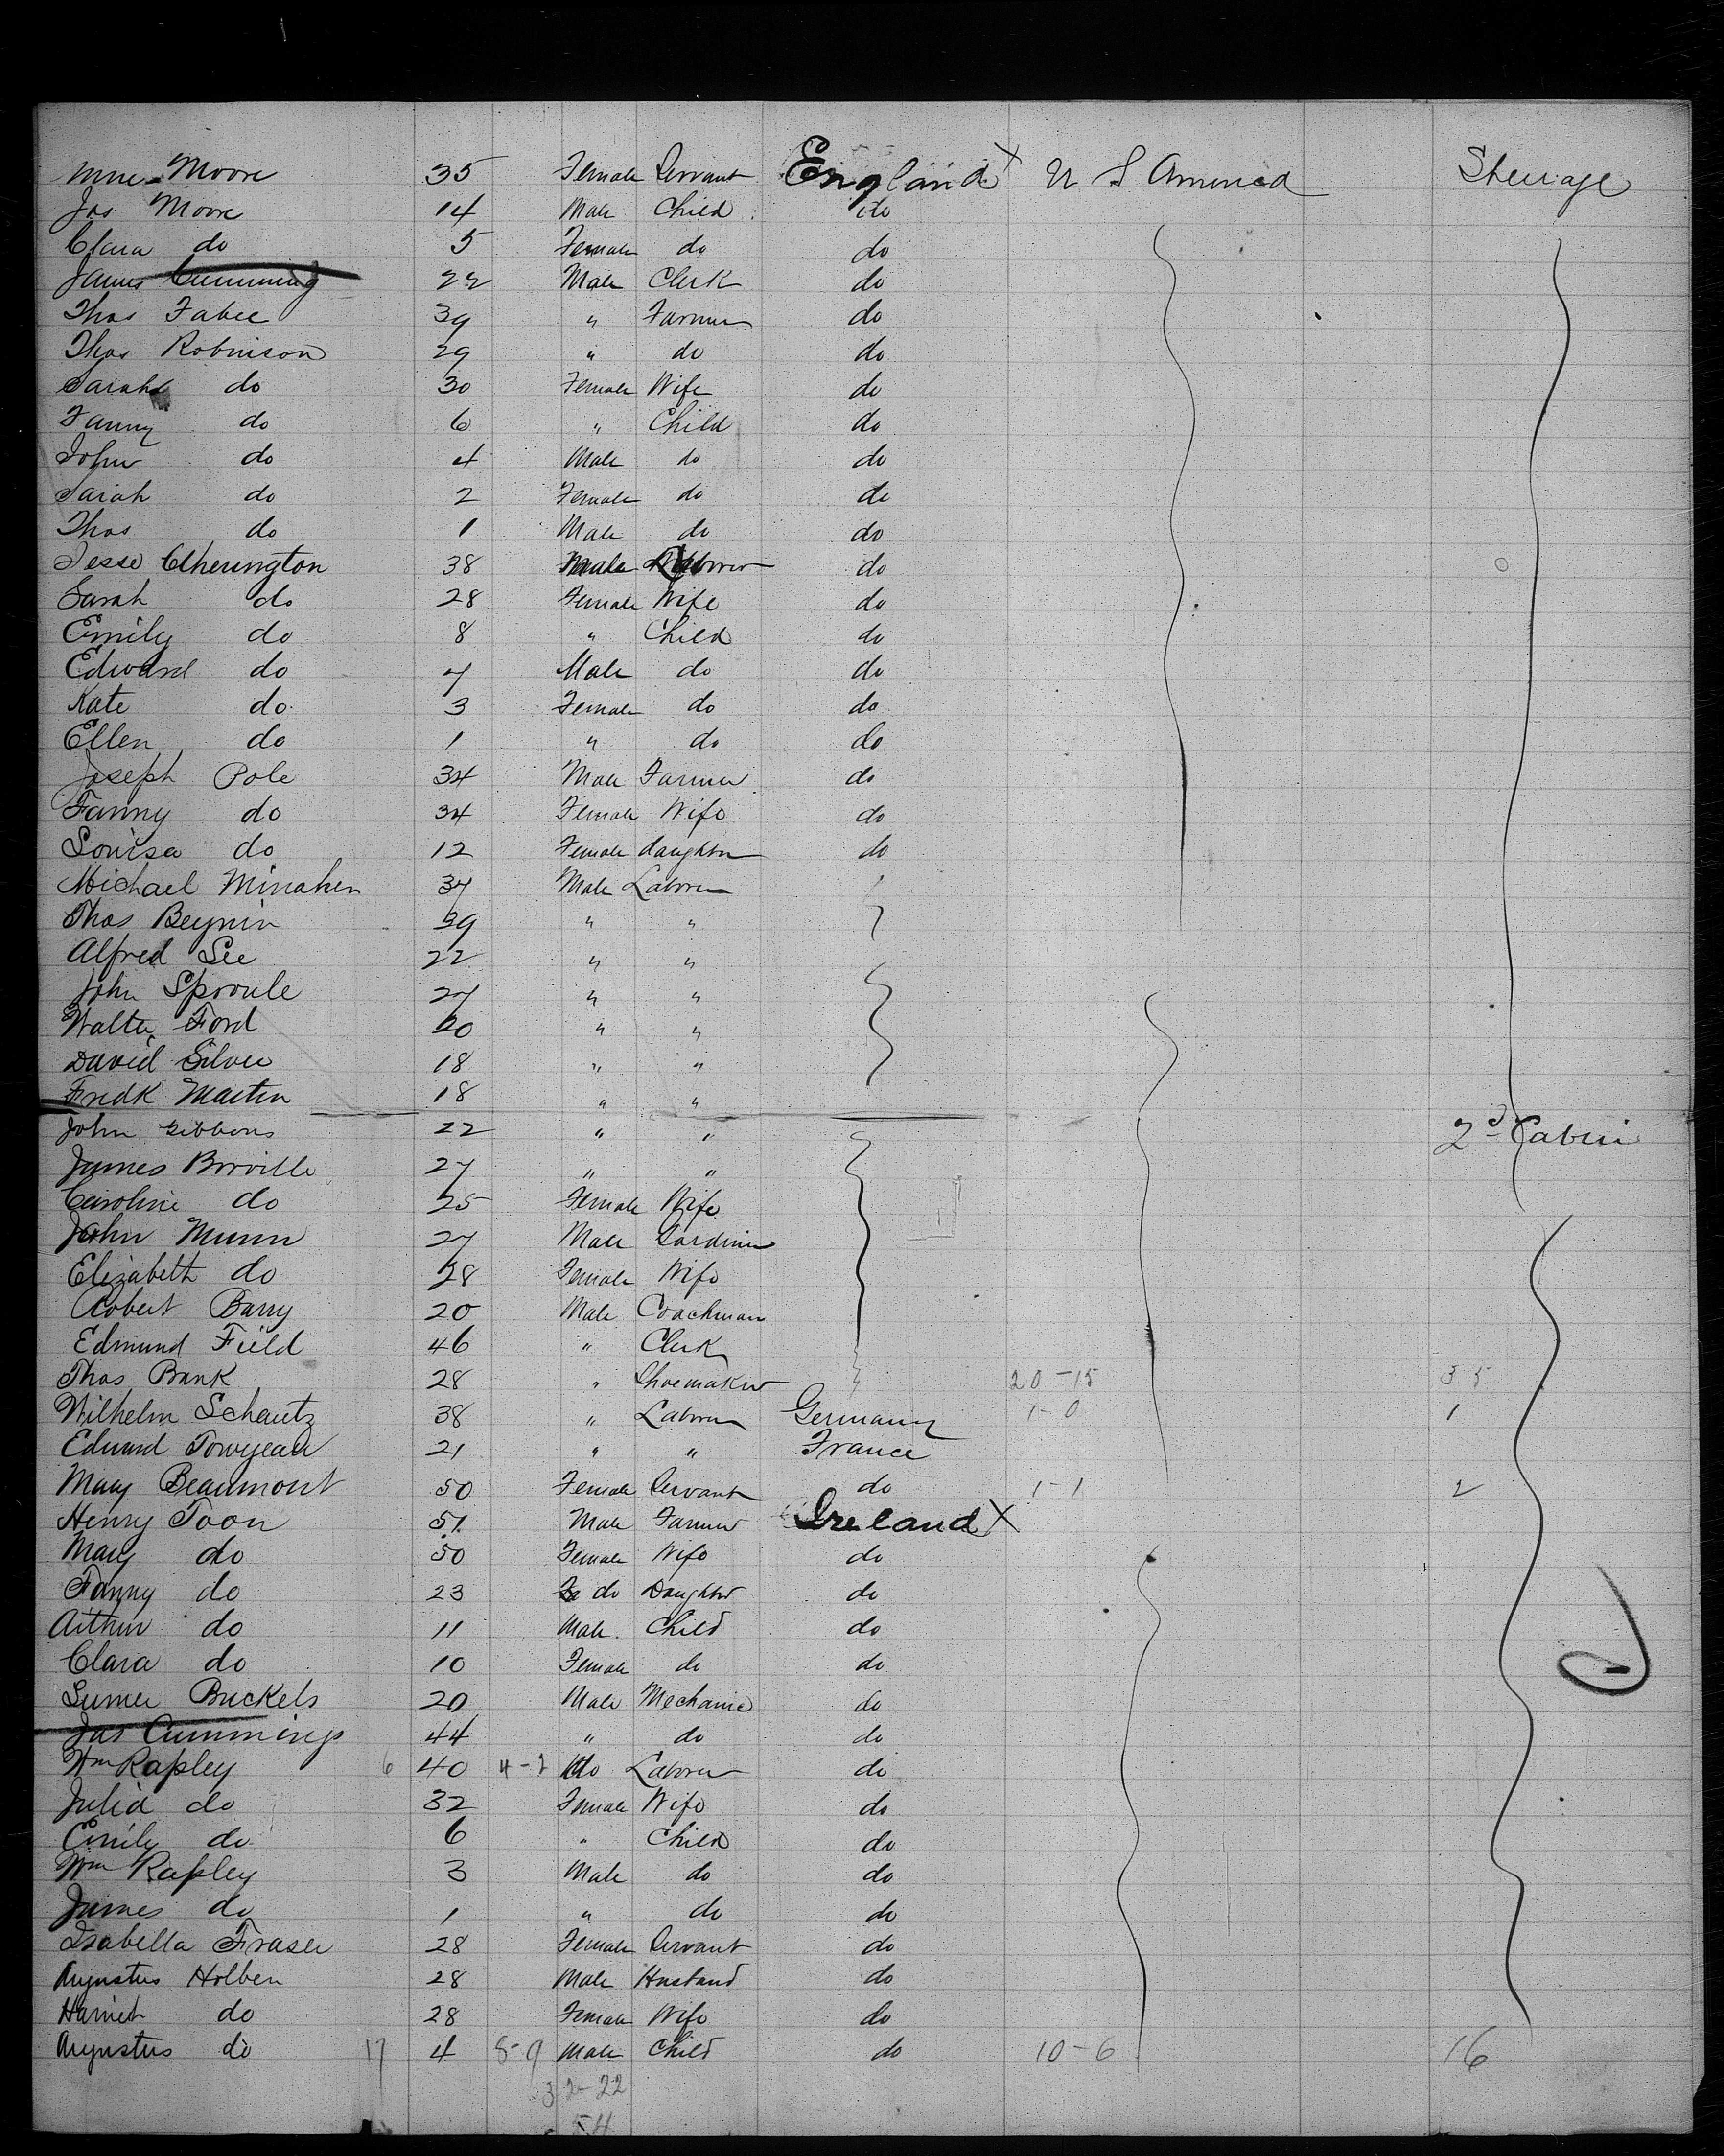 Mrs Moore 35 Female Servant England X U S America Steerage
Jas Moore 14 Male Child do
Clara do 5 Female do do
James Cumming 22 Male Clerk do
Thos Faber 39 " Farmer do
Thos Robinson 29 " do do
Sarah do 30 Female Wife do
Fanny do 6 " Child do
John do 4 Male do do
Sarah do 2 Female do do
Thos do 1 Male do do
Jesse Etherington 38 Male Laborer do
Sarah do 28 Female Wife do
Emily do 8 " Child do
Edward do 7 Male do do
Kate do 3 Female do do
Ellen do 1 " do do
Joseph Pole 34 Male Farmer do
Fanny do 34 Female Wife do
Louisa do 12 Female daughter do
Michael Minahen 37 Male Laborer
Thos Beynin 39 " "
Alfred Lee 22 " "
John Sproule 27 " "
Walter Ford 20 " "
David Silver 18 " "
Fredk Martin 18 " "
John Gibbons 22 " " 2d Cabin
James Borville 27 " "
Caroline do 25 Female Wife
John Munn 27 Male Gardiner
Elizabeth do 28 Female Wife
Robert Barry 20 Male Coachman
Edmund Field 46 " Clerk
Thos Bank 28 " Shoemaker 20-15 35
Wilhelm Schautz 38 " Laborer Germany 1-0 1
Edward 21 " " France
Mary Beaumont 50 Female Servant do 1-1 2
Henry Toon 51 Male Farmer Ireland X
Mary do 50 Female Wife do
Fanny do 23 do Daughter do
Arthur do 11 Male Child do
Clara do 10 Female do do
Buckels 20 Male Mechanic do
Jas Cummings 44 " do do
Wm Rapley 6 40 4-2 do Laborer do
Julia do 32 Female Wife do
Emily do 6 " Child do
Wm Rapley 3 Male do do
James do 1 " do do
Isabella Fraser 28 Female Servant do
Augustus Holben 28 Male Husband do
Harriet do 28 Female Wife do
Augustus do 17 4 8-9 Male Child do 10-6 16
32-22
54